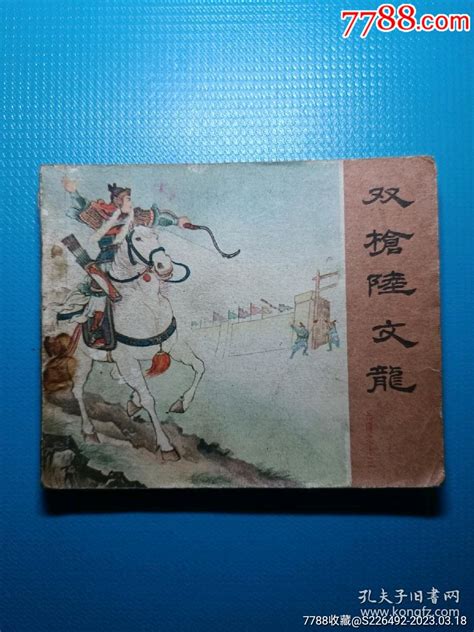 7788.com
双槍陸文龍
孔夫子旧书网
www.kongfz.com
7788收藏@S226492-2023.03.18